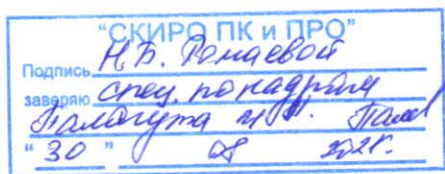 "СКИРО ПК и ПРО"
Подпись Н.Б. Ромаевой
заверяю спец. по кадрам
Палагута
"30" 2021г.